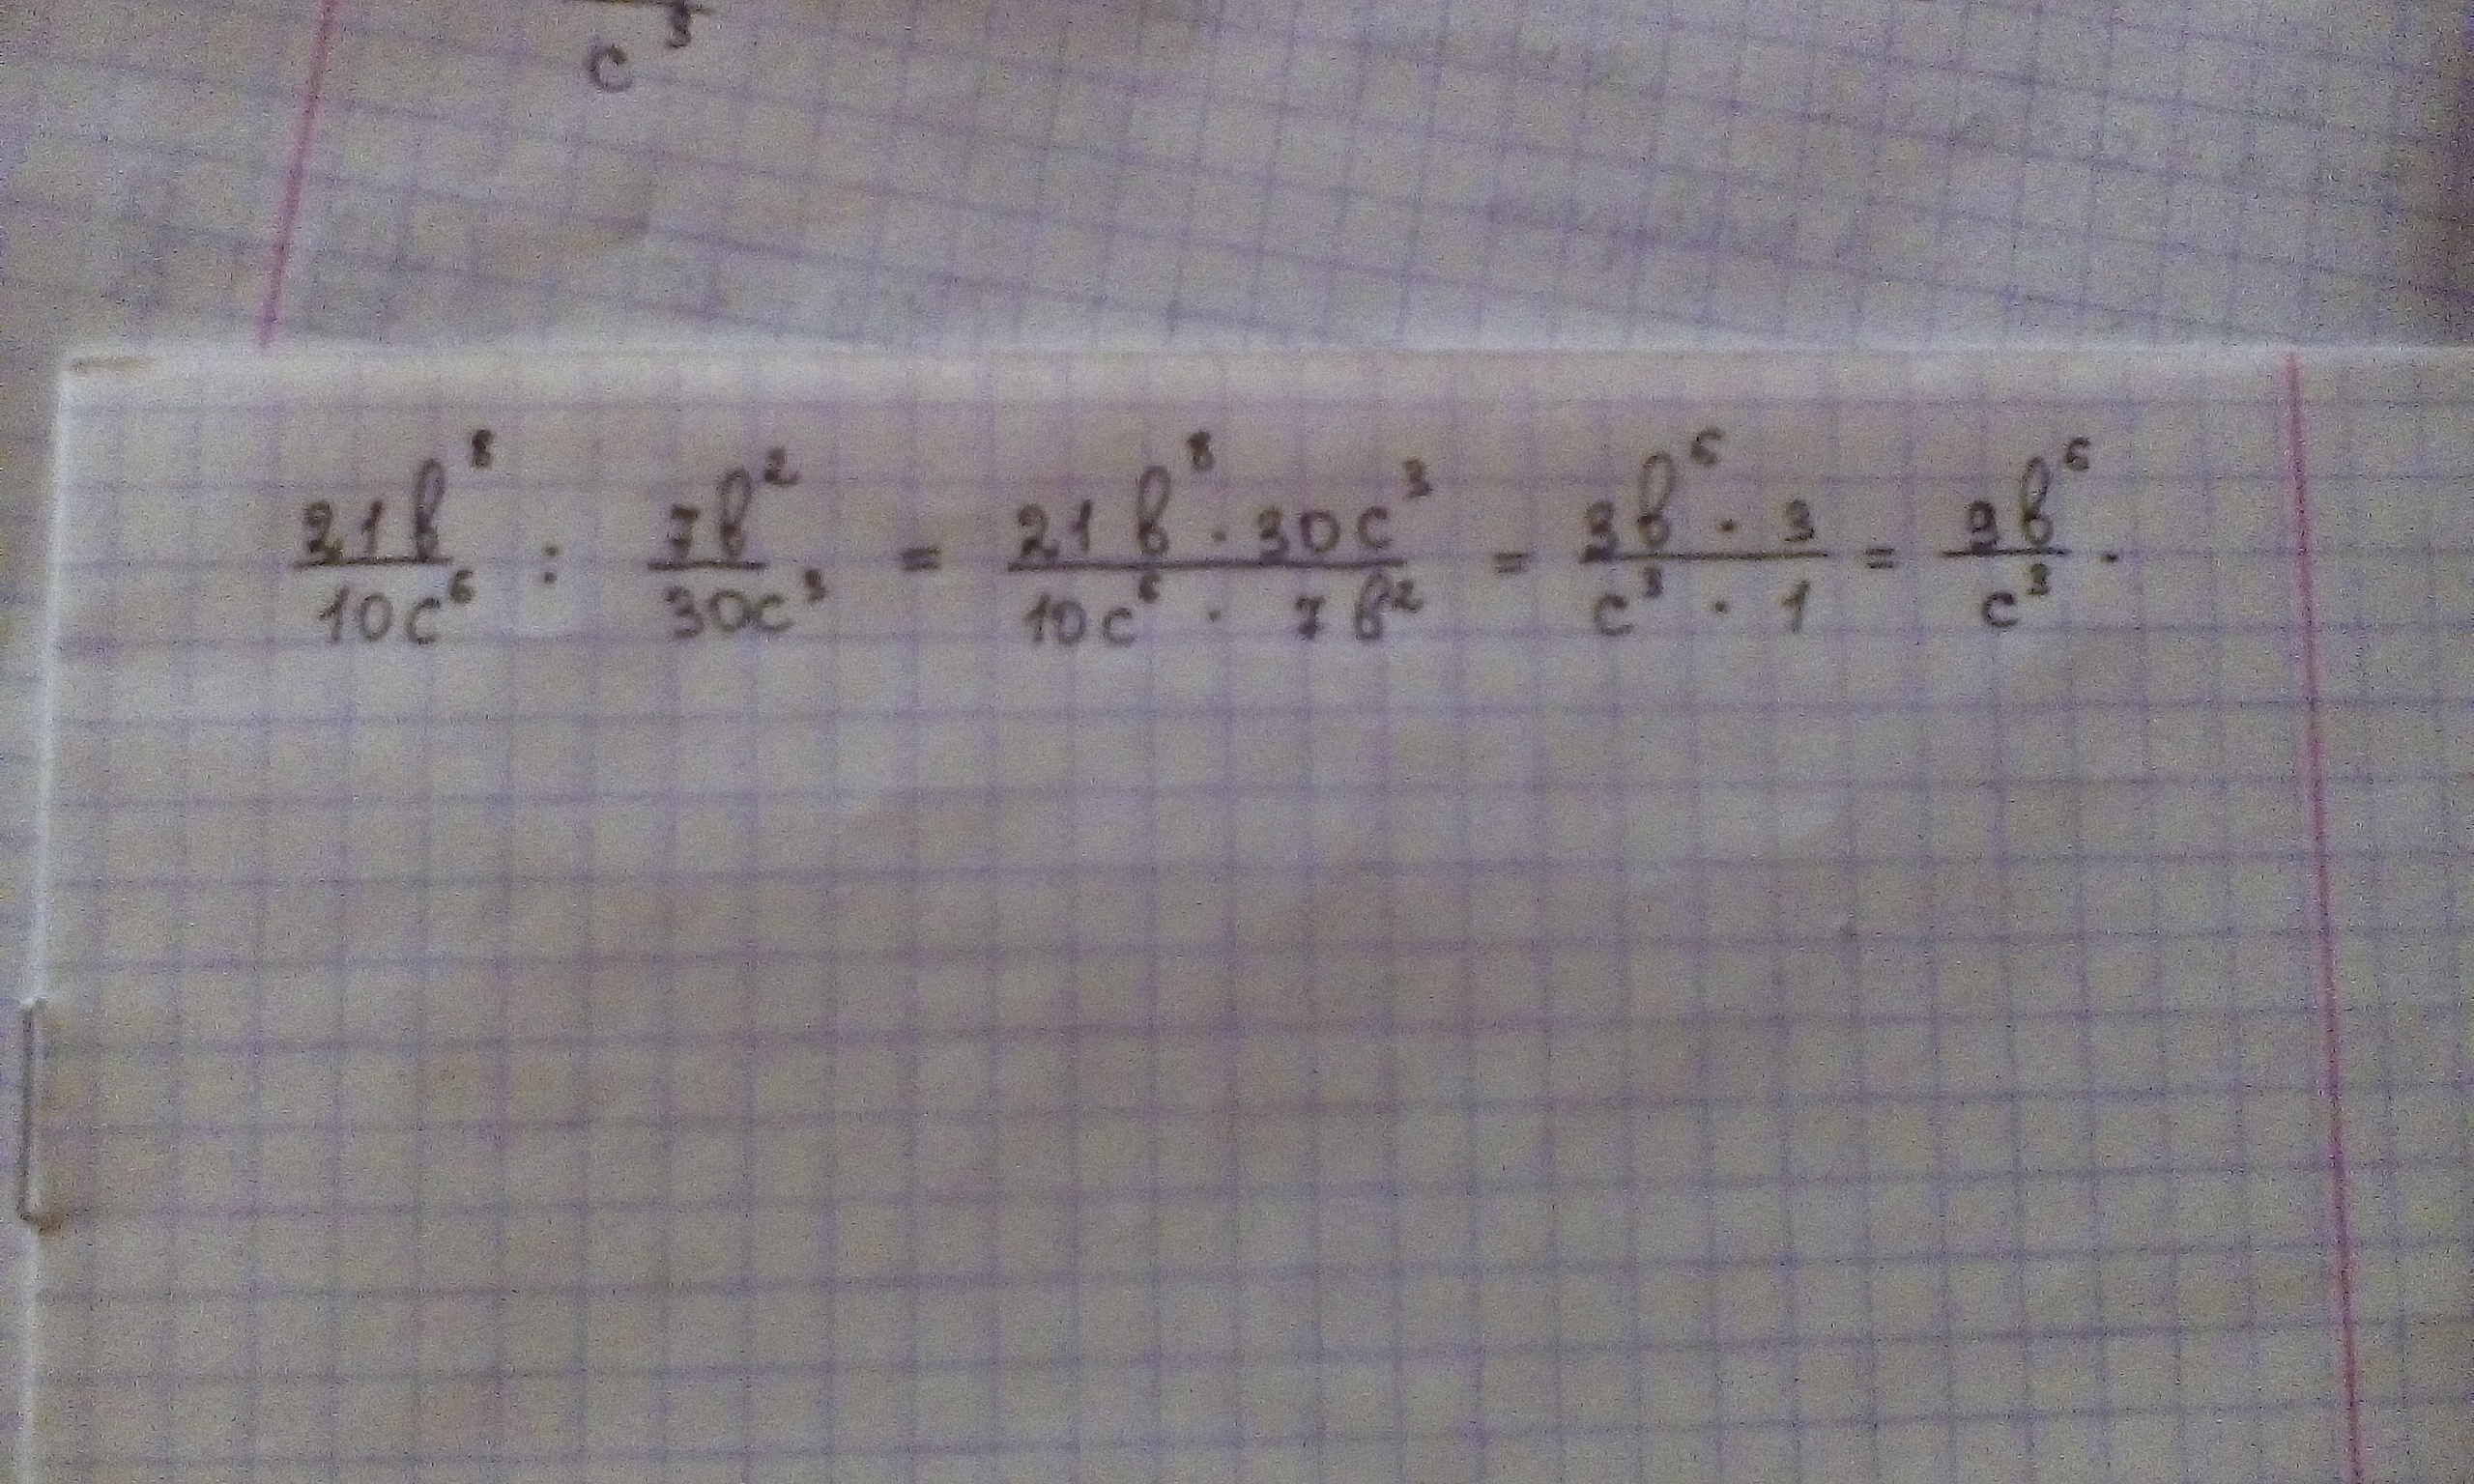 c³
21b⁸/10c⁶ : 7b²/30c³ = 21b⁸·30c³/10c⁶·7b² = 3b⁶·3/c³·1 = 9b⁶/c³.